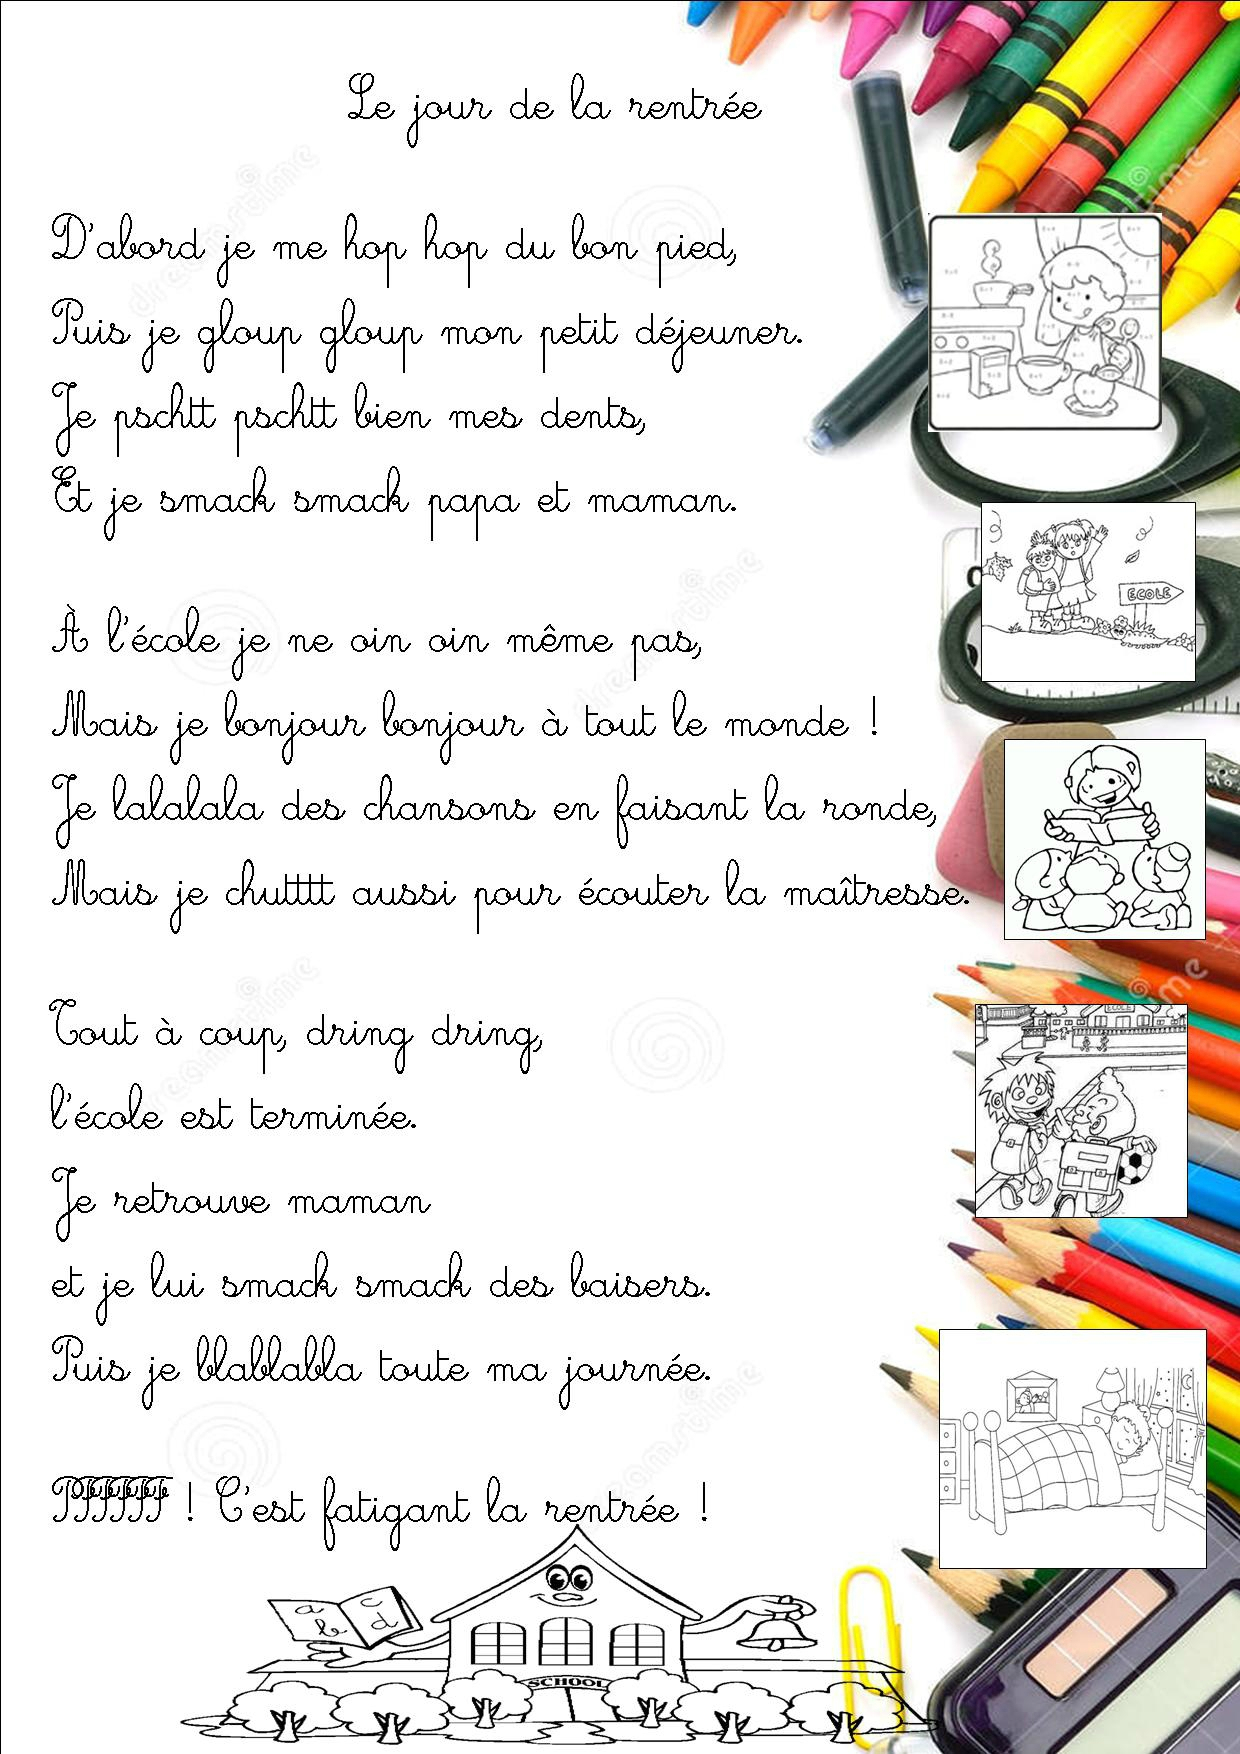 Le jour de la rentrée
D'abord je me hop hop du bon pied,
Puis je gloup gloup mon petit déjeuner.
Je pschtt pschtt bien mes dents,
Et je smack smack papa et maman.
À l'école je ne oin oin même pas,
Mais je bonjour bonjour à tout le monde !
Je lalalala des chansons en faisant la ronde,
Mais je chutttt aussi pour écouter la maîtresse.
Tout à coup, dring dring,
l'école est terminée.
Je retrouve maman
et je lui smack smack des baisers.
Puis je blablabla toute ma journée.
PFFFFFF ! C'est fatigant la rentrée !
ECOLE
ECOLE
a b c d
SCHOOL
dreamstime